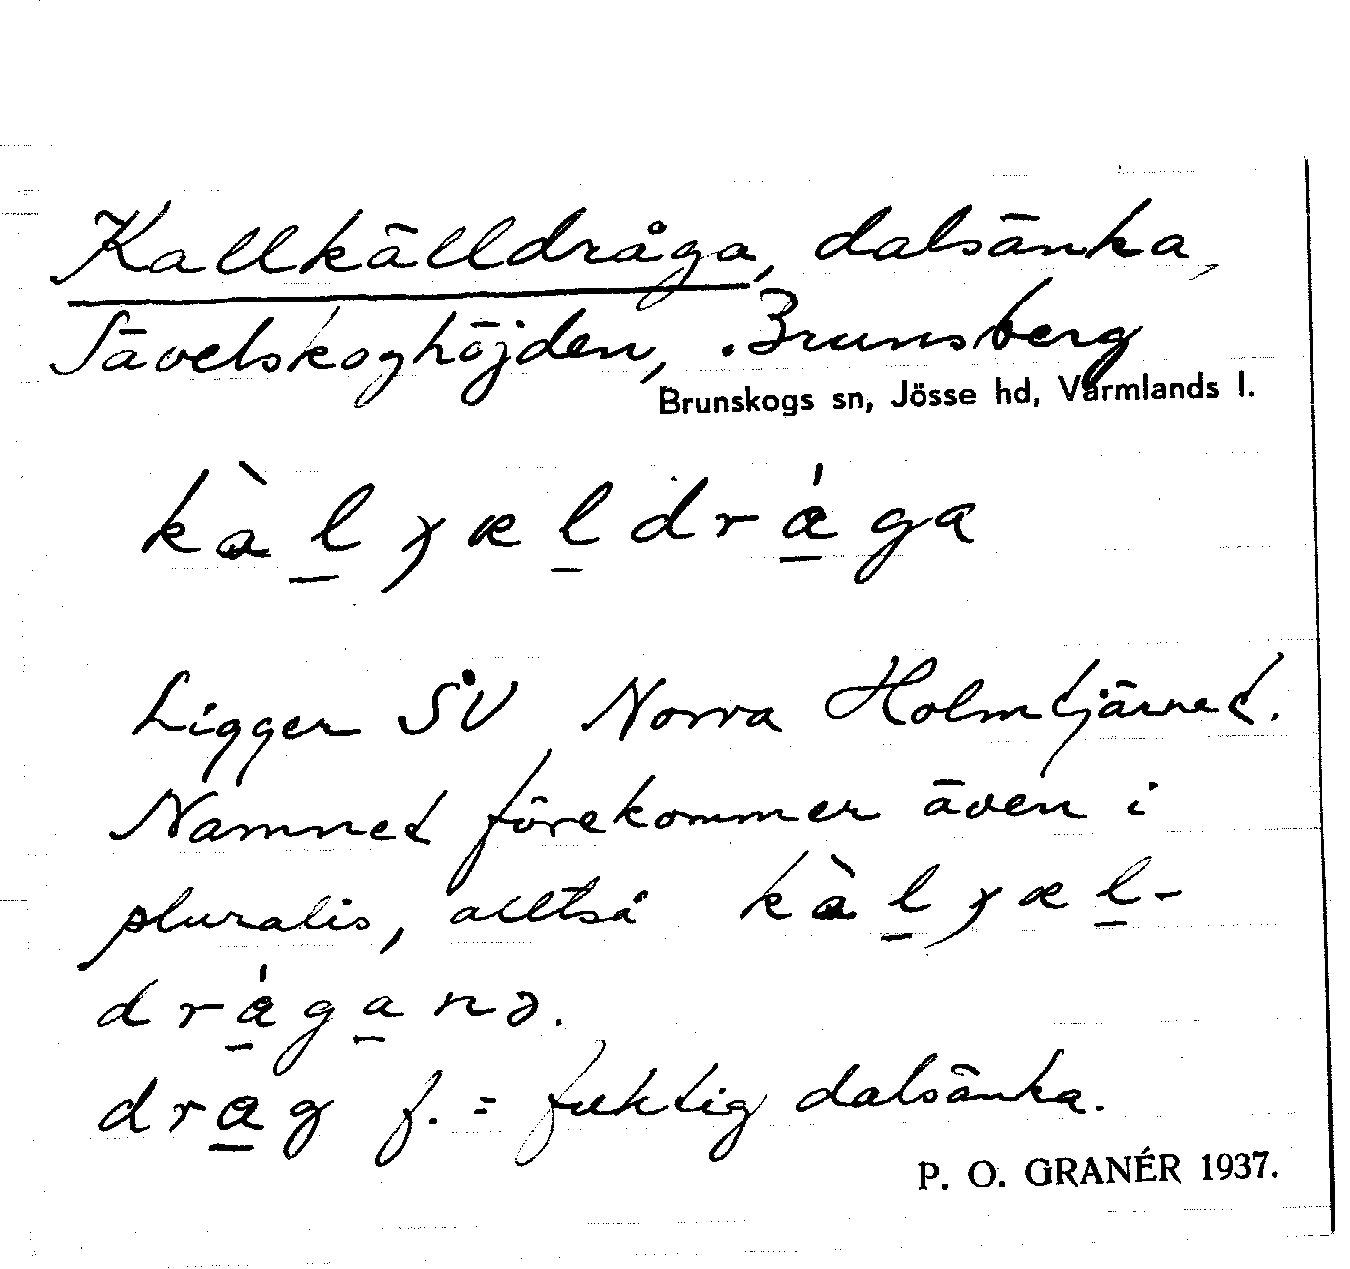 Kallkälldråga, dalsänka,
Sävelskoghöjden, Brunsberg
Brunskogs sn, Jösse hd, Värmlands l.
Ligger SV Norra Holmtjärnet.
Namnet förekommer även i
pluralis, alltså
f. = fuktig dalsänka.
P. O. GRANÉR 1937.